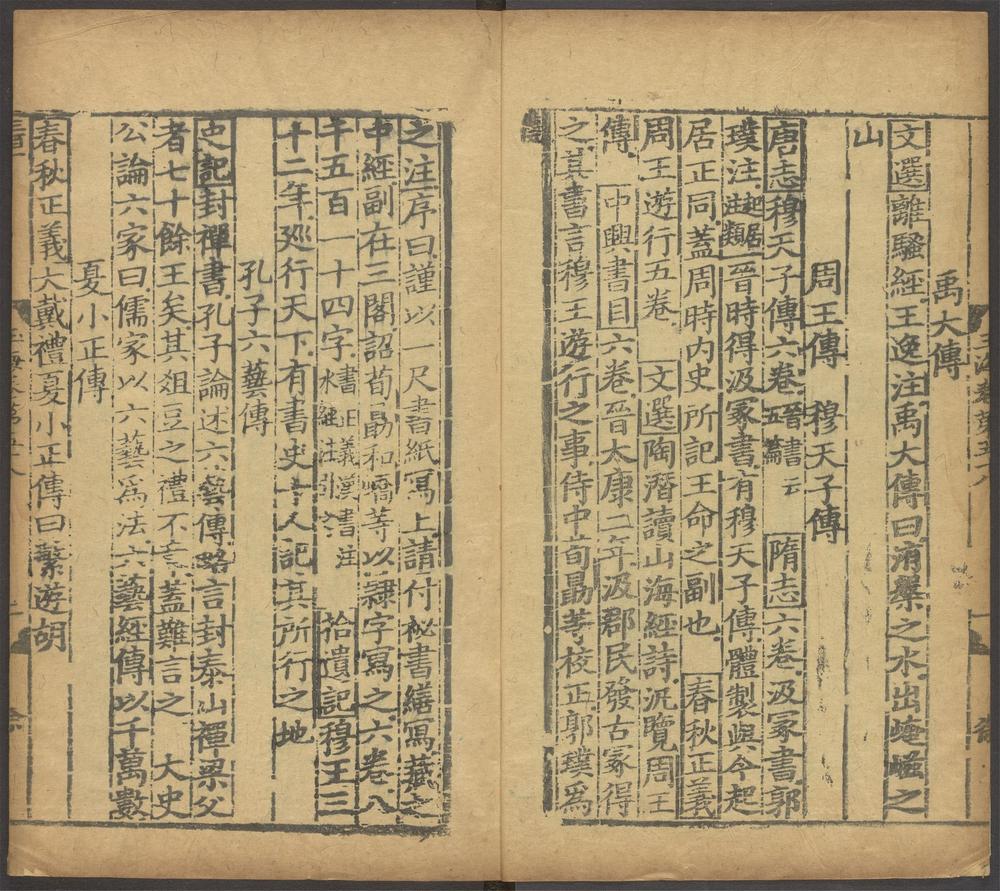 禹大傳
文選離騷經王逸注禹大傳曰洧槃之水出崦嵫之
山
周王傳 穆天子傳
唐志穆天子傳六卷郭
璞注起居注類晉書云五篇 隋志六卷汲冢書郭
璞注起居注類晉時得汲冢書有穆天子傳體製與今起
居正同蓋周時內史所記王命之副也 春秋正義
周王遊行五卷 文選陶潛讀山海經詩汎覽周王
傳 中興書目六卷晉太康二年汲郡民發古冢得
之其書言穆王遊行之事侍中荀勗等校正郭璞爲
之注序曰謹以一尺書紙寫上請付祕書繕寫藏之
中經副在三閣詔荀勗和嶠等以隸字寫之六卷八
千五百一十四字書正義漢書注水經注引之 拾遺記穆王三
十二年巡行天下有書史十人記其所行之地
孔子六藝傳
史記封禪書孔子論述六藝傳略言封泰山禪梁父
者七十餘王矣其俎豆之禮不章蓋難言之 大史
公論六家曰儒家以六藝爲法六藝經傳以千萬數
夏小正傳
春秋正義大戴禮夏小正傳曰蘩遊胡